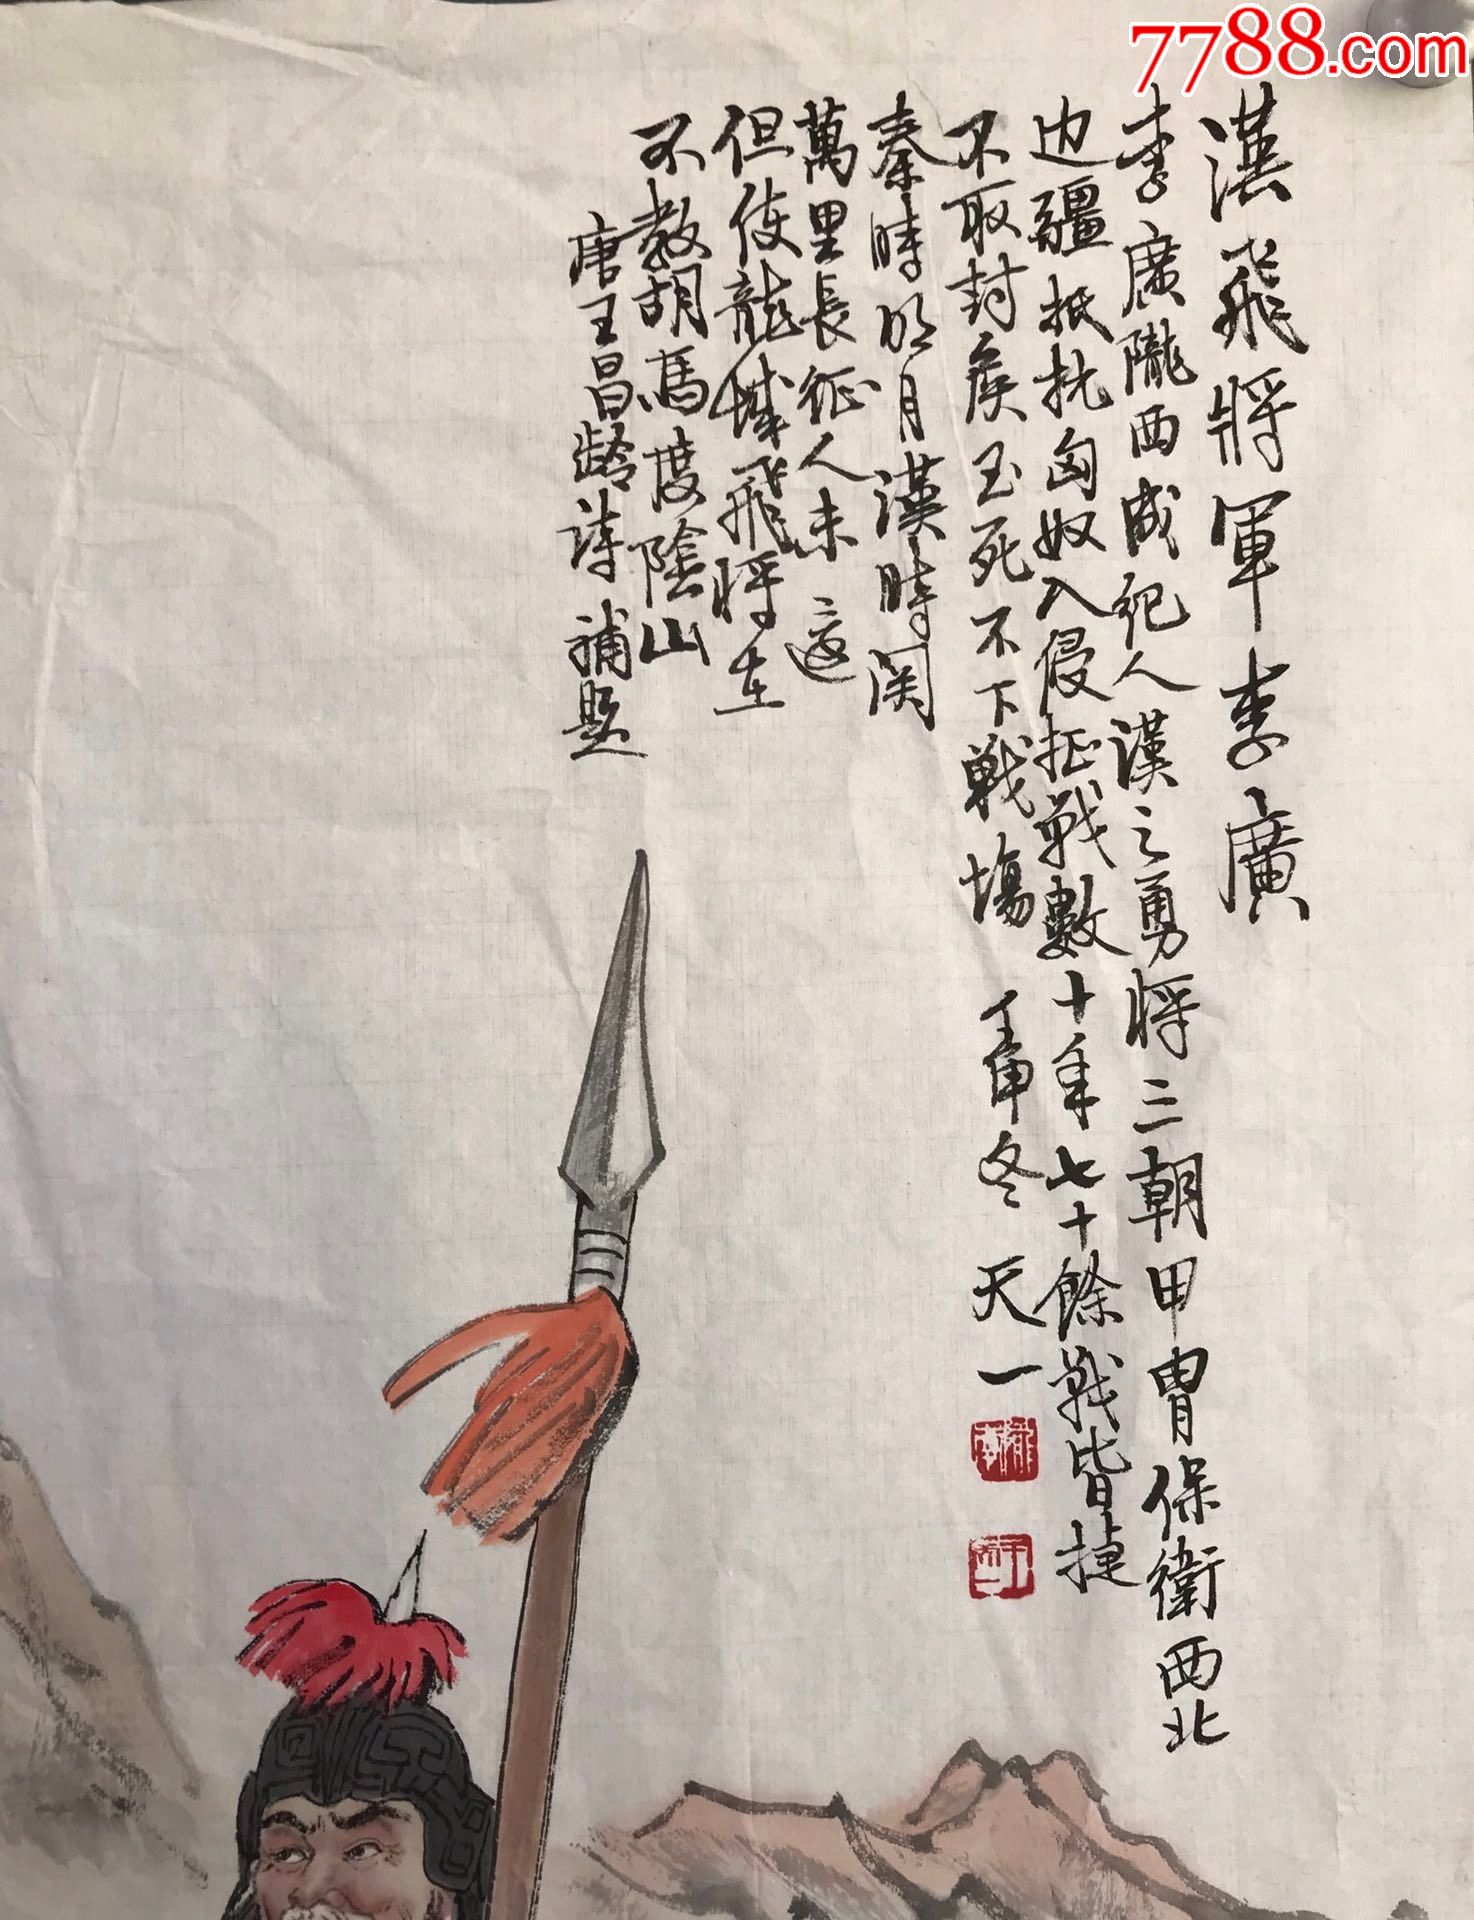 7788.com
漢飛將軍李廣
李廣隴西成纪人漢之勇将三朝甲胄保衛西北
边疆抵抗匈奴入侵征战數十年七十餘战皆捷
不取封侯玉死不下戰場 壬申冬 天一
秦時明月漢時関
萬里長征人未還
但使龍城飛将在
不教胡馬度陰山
唐王昌齡詩補題